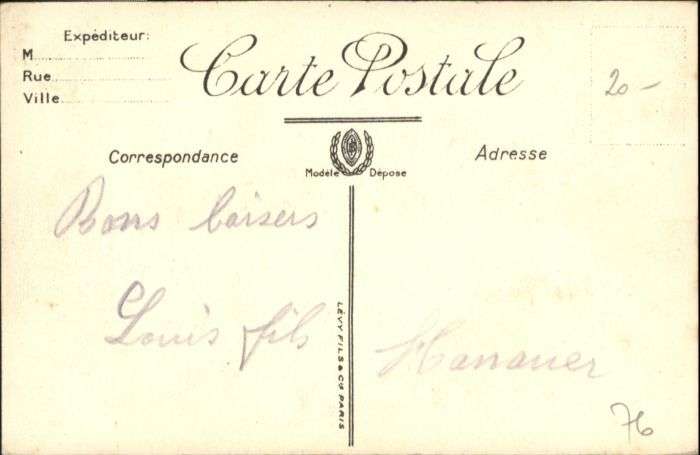 Expéditeur:
M
Rue
Ville
Carte Postale
20-
Correspondance
Modèle Déposé
Adresse
Bons baisers
Louis fils
Hanauer
LÉVY FILS & Cie PARIS
76